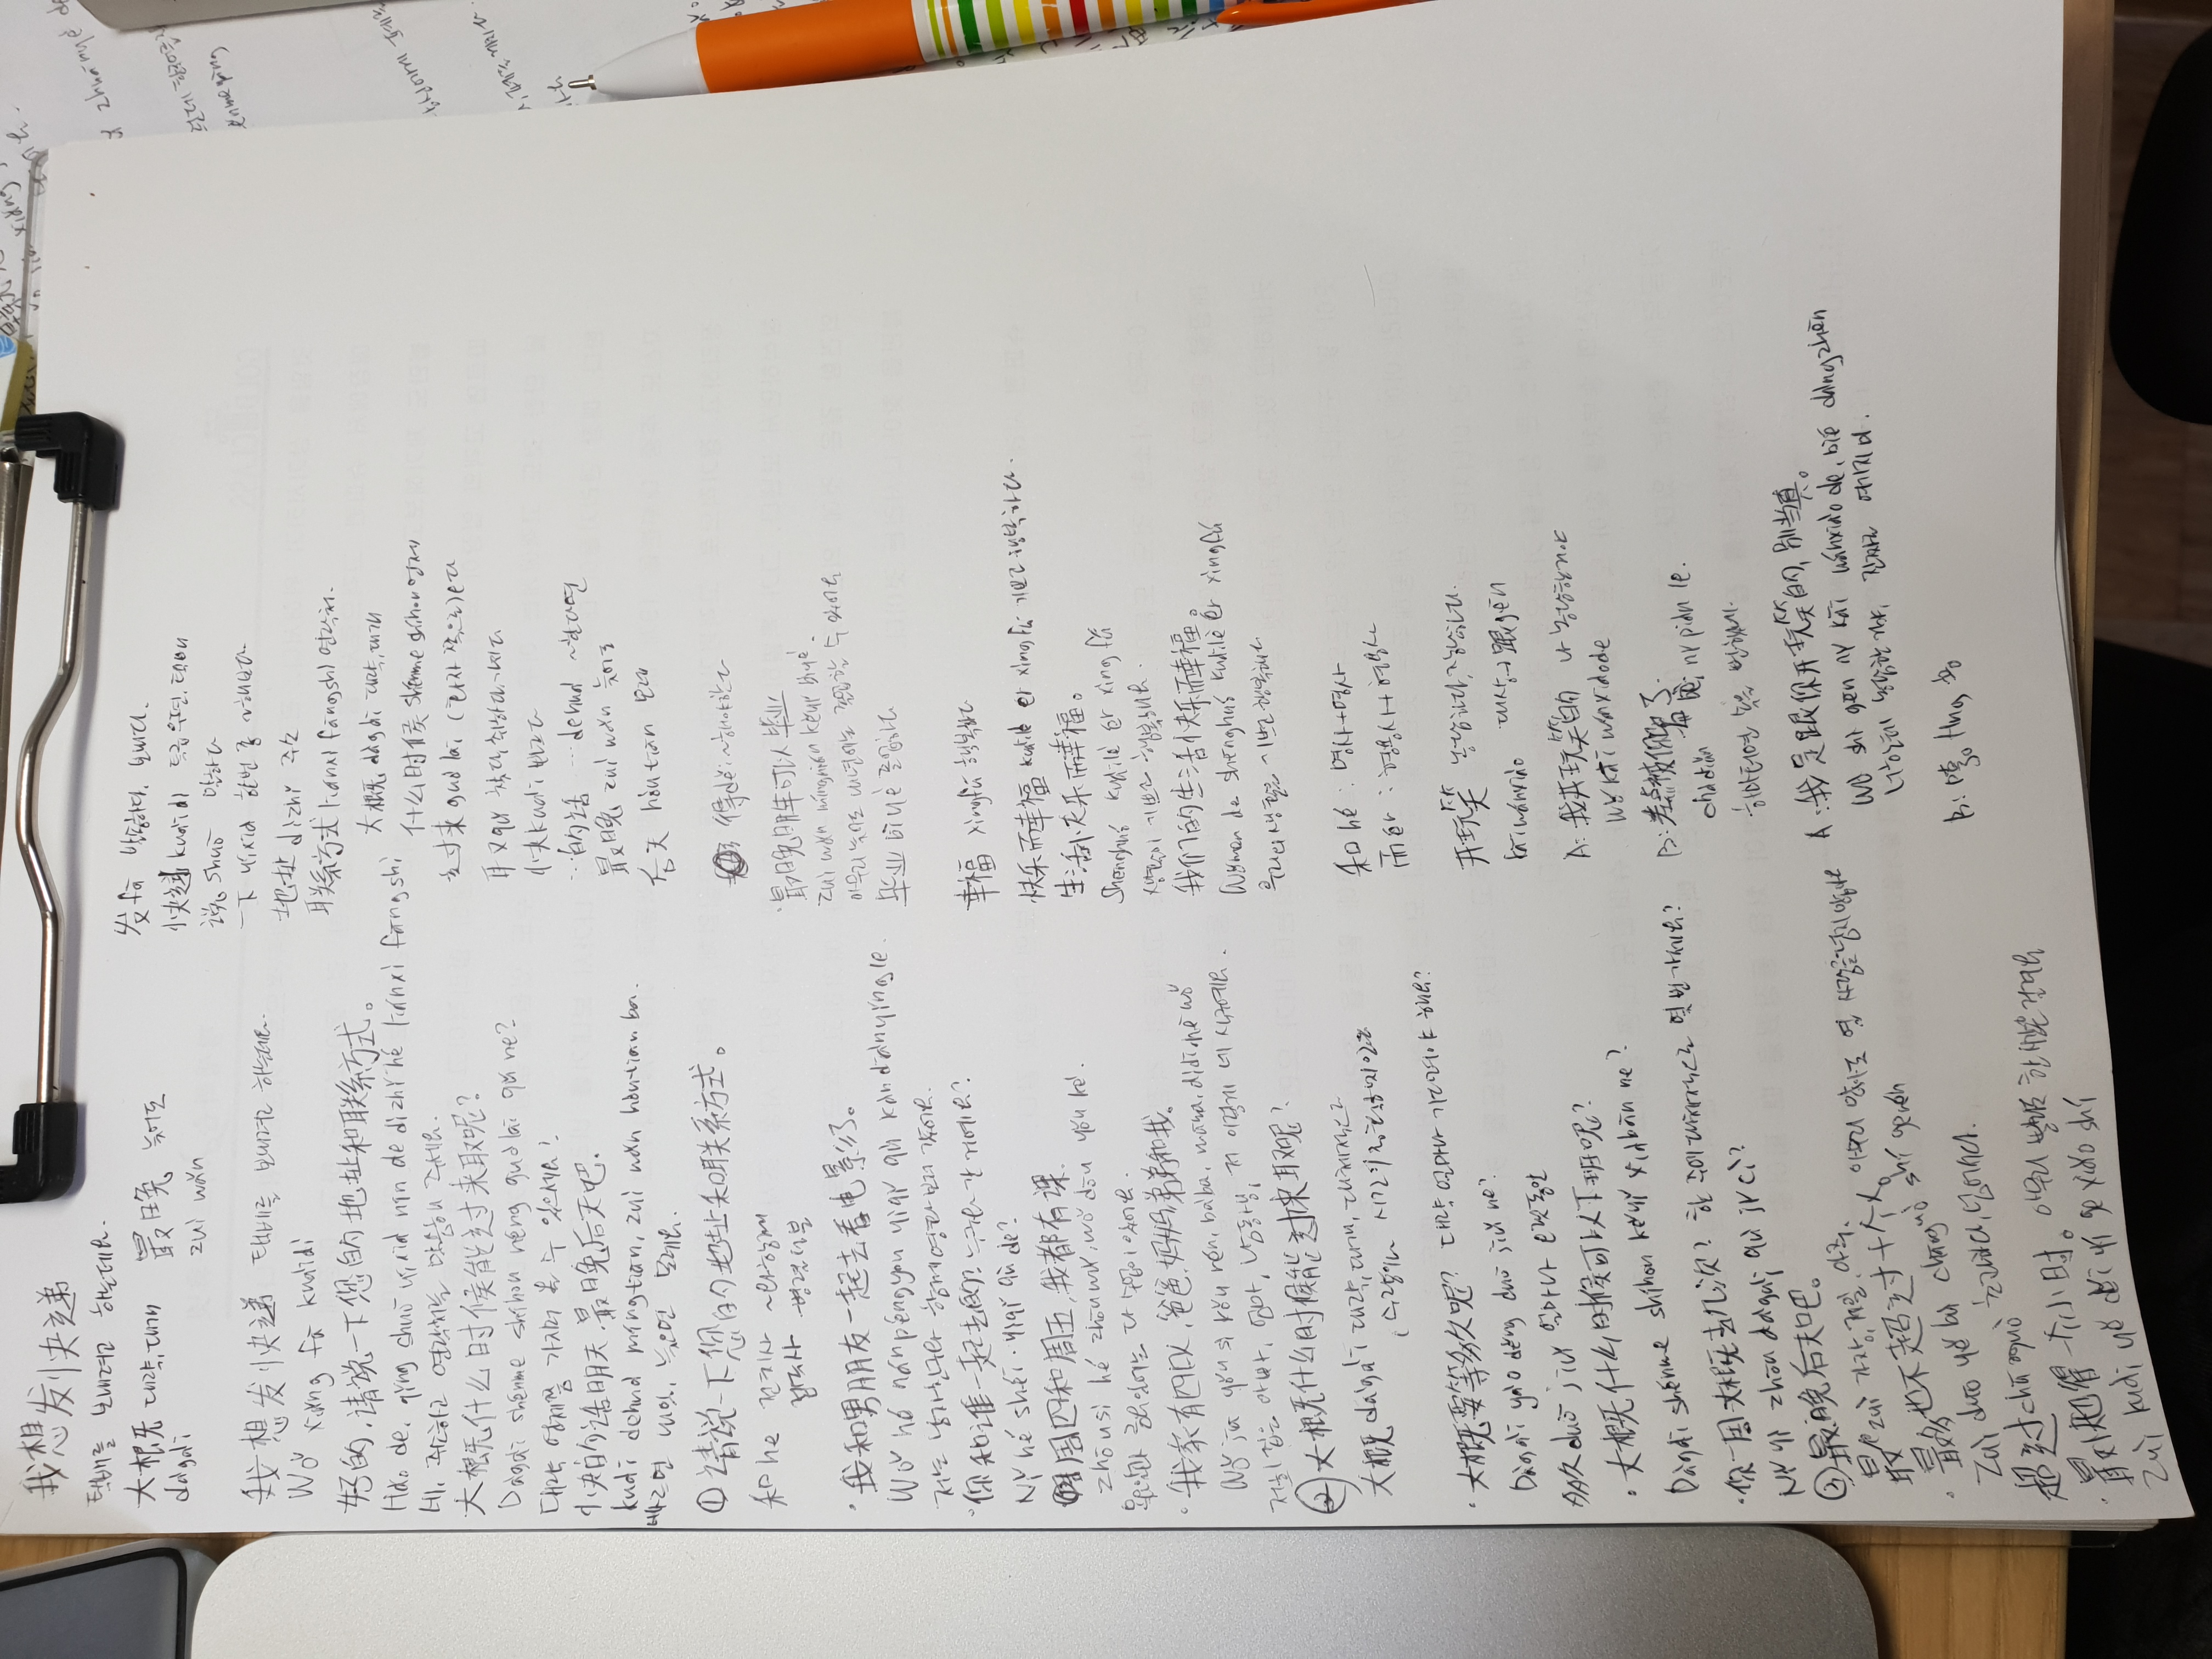 我想发快递
택배를 보내려고 하는데요.
大概 대략, 대개 最晚 늦어도
dàgài zuì wǎn
我想发快递 택배를 보내려고 하는데요.
Wǒ xiǎng fā kuàidì
好的,请说一下您的地址和联系方式。
Hǎo de, qǐng shuō yíxià nín de dìzhǐ hé liánxì fāngshì
네, 주소하고 연락처를 말씀해 주세요.
大概什么时候能过来取呢?
Dàgài shénme shíhou néng guòlái qǔ ne?
대략 언제쯤 가지러 올 수 있으세요?
快的话明天,最晚后天吧.
kuài dehuà míngtiān, zuì wǎn hòutiān ba.
빠르면 내일, 늦으면 모레요.
① 请说一下您的地址和联系方式。
和 hé 전치사 ~와 함께
접속사 병렬
·我和男朋友一起去看电影了。
Wǒ hé nánpéngyou yìqǐ qù kàn diànyǐng le.
저는 남자친구와 함께 영화 보러 갔어요.
·你和谁一起去的? 누구와 간 거예요?
Nǐ hé shéi yìqǐ qù de?
周四和周五,我都有课.
Zhōusì hé zhōuwǔ, wǒ dōu yǒu kè.
목요일과 금요일에는 다 수업이 있어요.
·我家有四口人,爸爸,妈妈,弟弟和我。
Wǒ jiā yǒu sì kǒu rén, bàba, māma, dìdi hé wǒ
저희 집은 아빠, 엄마, 남동생, 저 이렇게 네 식구예요.
② 大概什么时候能过来取呢?
大概 dàgài 대략, 대개, 대체적으로
, 수량이나 시간의 정확하지 않은
·大概要等多久呢? 대략 얼마나 기다려야 해요?
Dàgài yào děng duō jiǔ ne?
多久 duō jiǔ 얼마나 오랫동안
·大概什么时候可以下班呢?
Dàgài shénme shíhou kěyǐ xiàbān ne?
·你一周大概去几次? 한 주에 대체적으로 몇 번 가세요?
Nǐ yì zhōu dàgài qù jǐ cì?
③ 最晚后天吧。
最 zuì 가장, 제일, 아주.
·最多也不超过十个人。 아무리 많아도 열 사람을 넘지 않아요
Zuì duō yě bù chāoguò shí ge rén
超过 chāoguò 초과하다, 넘어서다.
·最快也得一个小时。 아무리 빨라도 한 시간은 걸려요
Zuì kuài yě děi yí ge xiǎo shí
发 fā 발송하다, 보내다.
快递 kuàidì 특급우편, 택배
说 shuō 말하다
一下 yíxià 한번 좀 ~해보다
地址 dìzhǐ 주소
联系方式 liánxì fāngshì 연락처.
大概 dàgài 대략, 대개
什么时候 shénme shíhou 언제
过来 guòlái (화자 쪽으로)오다
取 qǔ 찾다, 취하다, 가지다
快 kuài 빠르다
…的话 …dehuà ~한다면
最晚 zuì wǎn 늦어도
后天 hòutiān 모레
得 děi ~해야한다
最晚明年可以毕业
Zuì wǎn míngnián kěyǐ bìyè.
아무리 늦어도 내년에는 졸업할 수 있어요
毕业 bìyè 졸업하다
幸福 xìngfú 행복하다
快乐而幸福 kuàilè ér xìngfú 기쁘고 행복하다.
生活快乐而幸福。
Shēnghuó kuàilè ér xìngfú
생활이 기쁘고 행복해요.
我们的生活快乐而幸福。
Wǒmen de shēnghuó kuàilè ér xìngfú
우리의 생활은 기쁘고 행복하다
和 hé : 명사+명사
而 ér : 형용사+형용사
开玩笑 농담하다, 장난하다.
kāiwánxiào 대상→跟 gēn
A: 我开玩笑的 나 농담한거야
Wǒ kāi wánxiàode
B: 差点被你骗了.
chàdiǎn bèi nǐ piàn le.
하마터면 속을 뻔했네.
A: 我是跟你开玩笑的,别当真。
Wǒ shì gēn nǐ kāi wánxiào de, bié dàngzhēn
너한테 농담한거야, 진짜로 여기지 마.
B: 哼。 Hng 흥